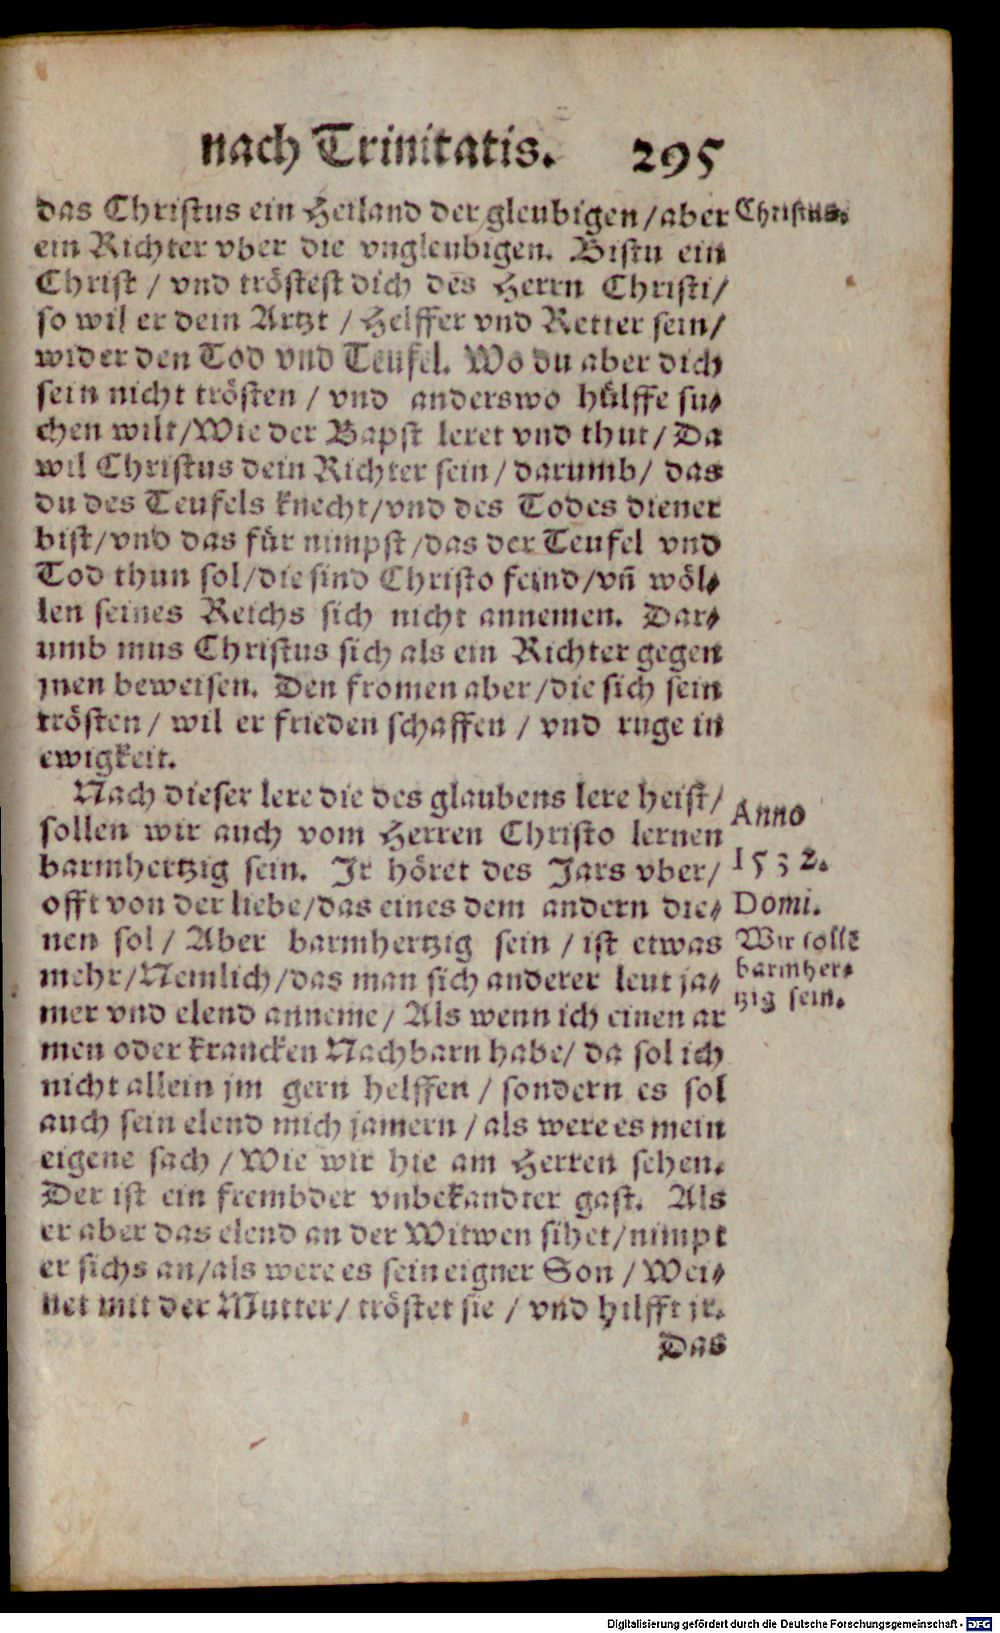 nach Trinitatis. 295
das Christus ein Heiland der gleubigen/aber
ein Richter vber die vngleubigen. Bistu ein
Christ / vnd tröstest dich des Herrn Christi/
so wil er dein Artzt / Helffer vnd Retter sein/
wider den Tod vnd Teufel. Wo du aber dich
sein nicht trösten / vnd anderswo hülffe su⸗
chen wilt/Wie der Bapst leret vnd thut/ Da
wil Christus dein Richter sein/ darumb/ das
du des Teufels knecht/vnd des Todes diener
bist/vnd das für nimpst/das der Teufel vnd
Tod thun sol/die sind Christo feind/vñ wöl⸗
len seines Reichs sich nicht annemen. Dar⸗
umb mus Christus sich als ein Richter gegen
jnen beweisen. Den fromen aber/die sich sein
trösten/ wil er frieden schaffen / vnd ruge in
ewigkeit.
Nach dieser lere die des glaubens lere heist/
sollen wir auch vom Herren Christo lernen
barmhertzig sein. Ir höret des Jars vber/
offt von der liebe/das eines dem andern die⸗
nen sol/ Aber barmhertzig sein / ist etwas
mehr/Nemlich/das man sich anderer leut ja⸗
mer vnd elend anneme/ Als wenn ich einen ar
men oder krancken Nachbarn habe/ da sol ich
nicht allein jm gern helffen / sondern es sol
auch sein elend mich jamern / als were es mein
eigene sach / Wie wir hie am Herren sehen.
Der ist ein frembder vnbekandter gast. Als
er aber das elend an der Witwen sihet/nimpt
er sichs an/als were es sein eigner Son / Wei⸗
net mit der Mutter/ tröstet sie / vnd hilfft jr.
Das
Christus.
Anno
1532.
Domi.
Wir sollē
barmher⸗
tzig sein.
Digitalisierung gefördert durch die Deutsche Forschungsgemeinschaft - DFG